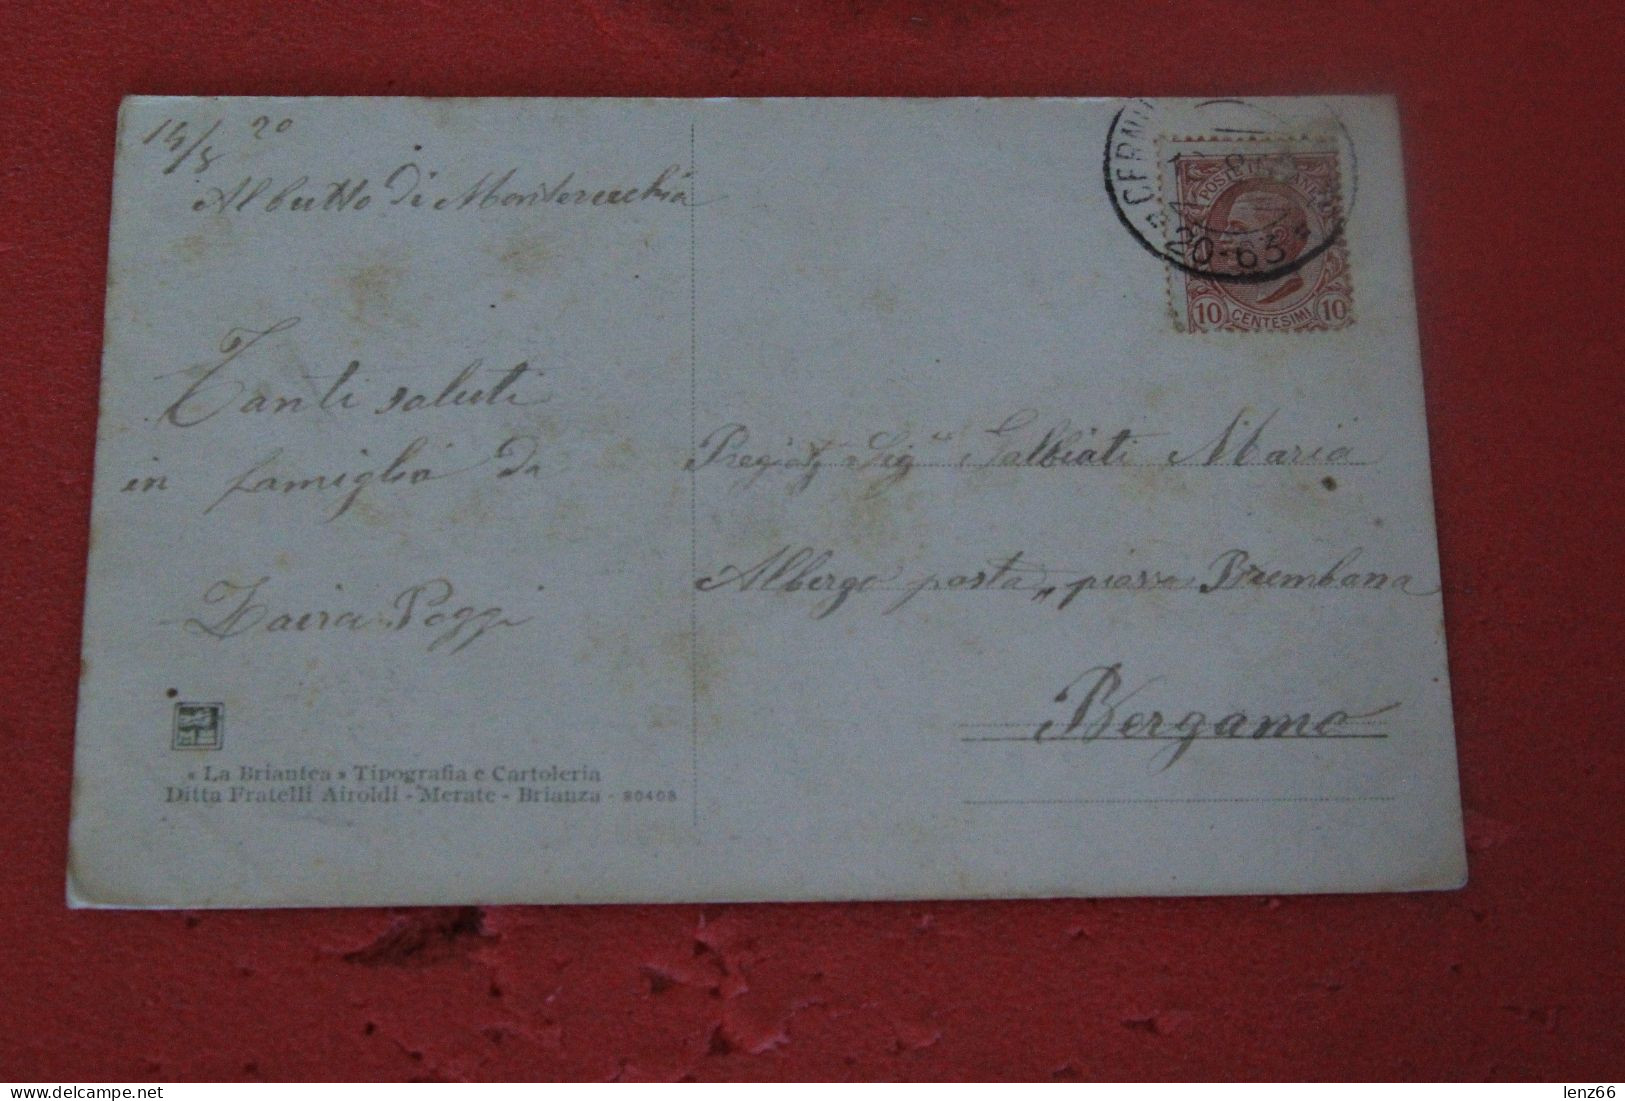 14/8 20
Albutto di Montevecchia
Tanti saluti
in famiglia da
Zaira Poggi
« La Briantea » Tipografia e Cartoleria
Ditta Fratelli Airoldi - Merate - Brianza - 80408
POSTE ITALIANE
20-63
10 CENTESIMI 10
Sig Galbiati Maria
Albergo posta piazza Brembana
Bergamo
lenz66